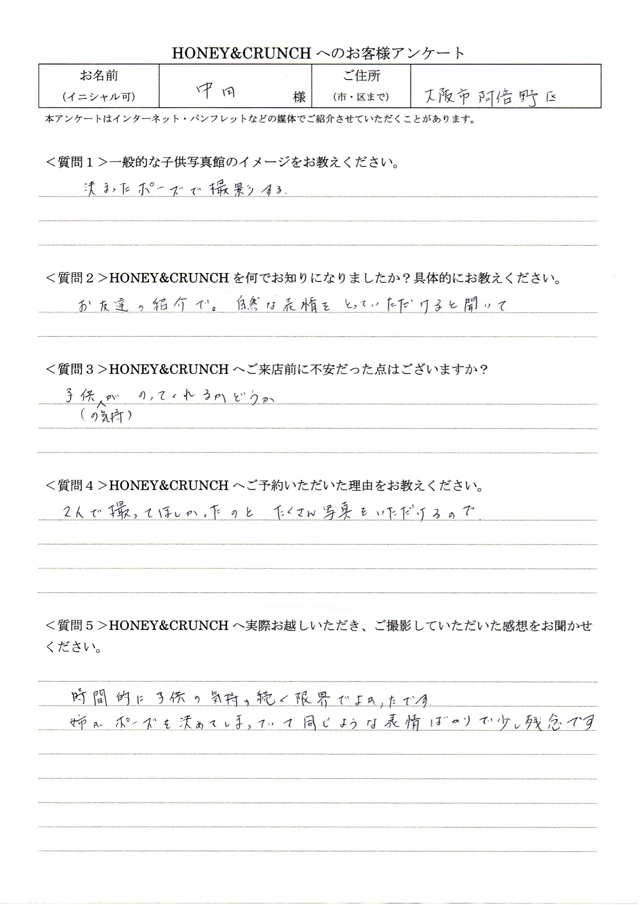 HONEY&CRUNCH へのお客様アンケート
お名前
(イニシャル可)
中田 様
ご住所
(市・区まで)
大阪市阿倍野区
本アンケートはインターネット・パンフレットなどの媒体でご紹介させていただくことがあります。
＜質問１＞一般的な子供写真館のイメージをお教えください。
決まったポーズで撮影する
＜質問２＞HONEY&CRUNCH を何でお知りになりましたか？具体的にお教えください。
お友達の紹介で。自然な表情をとっていただけると聞いて
＜質問３＞HONEY&CRUNCH へご来店前に不安だった点はございますか？
子供がのってくれるかどうか
(の気持)
＜質問４＞HONEY&CRUNCH へご予約いただいた理由をお教えください。
2人で撮ってほしかったのと たくさん写真をいただけるので
＜質問５＞HONEY&CRUNCH へ実際お越しいただき、ご撮影していただいた感想をお聞かせ
ください。
時間的に子供の気持の続く限界でよかったです
姉がポーズを決めてしまっていて同じような表情ばかりで少し残念です